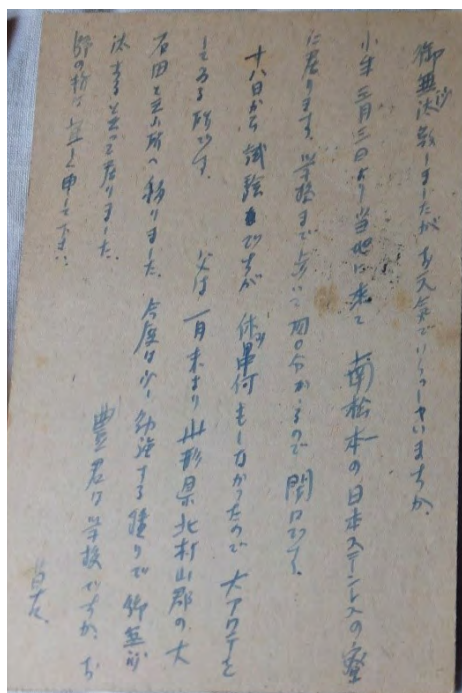 御無沙汰致しましたがお元気でいらっしゃいますか、
小生三月三日より当地に来て 南松本の日本ステンレスの寮
に居ります。学校まで歩いて四〇分かゝるので閉口です。
十八日から試験ですが 休中何もしなかったので 大アワテを
してゐる所です。 父は一月末より山形県北村山郡の大
石田と云ふ所へ移りました 今度は少し勉強する積りで御無沙
汰すると云って居りました。 豊君は学校ですか、お
宜しく申して下さい